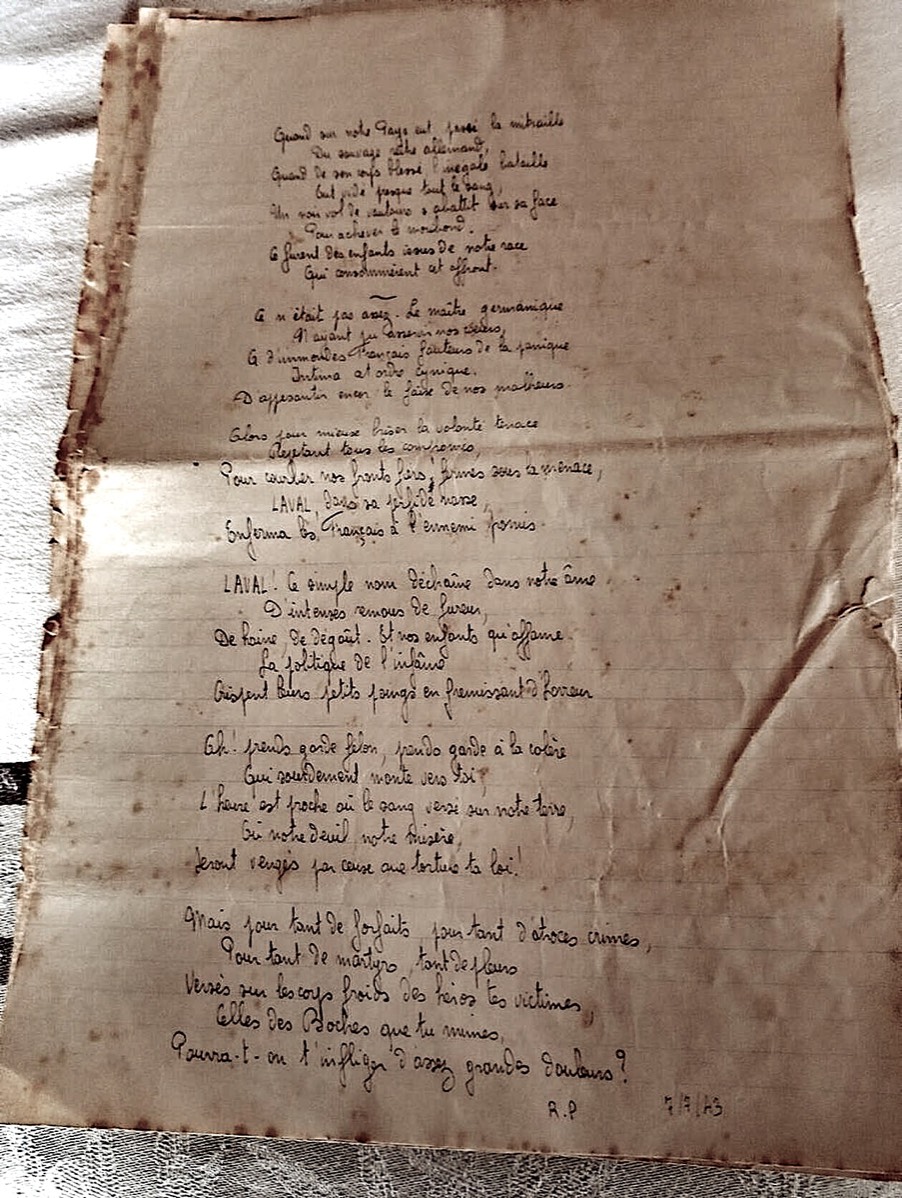 Quand sur notre Pays eut passé la mitraille
Du sauvage reître allemand,
Quand de son corps blessé l'inégale bataille
Eut vidé presque tout le sang,
Un noir vol de vautours s'abattit sur sa face
Pour achever le moribond.
Ce furent des enfants issus de notre race
Qui consommèrent cet affront.
Ce n'était pas assez. Le maître germanique
N'ayant pu asservir nos cœurs,
A d'immondes Français fauteurs de la panique
Intima cet ordre cynique.
D'appesantir encor le faix de nos malheurs.
Alors pour mieux briser la volonté tenace
Rejetant tous les compromis,
Pour courber nos fronts fiers, fermes sous la menace,
LAVAL, dans sa perfide nasse,
Enferma les Français à l'ennemi promis.
LAVAL! Ce simple nom déchaîne dans notre âme
D'intenses remous de fureur,
De haine, de dégoût. Et nos enfants qu'affame
La politique de l'infâme
Crispent leurs petits poings en frémissant d'horreur
Ah! prends garde félon, prends garde à la colère
Qui sourdement monte vers toi,
L'heure est proche où le sang versé sur notre terre,
Où notre deuil, notre misère,
Seront vengés par ceux que torture ta loi!
Mais pour tant de forfaits pour tant d'atroces crimes,
Pour tant de martyrs, tant de pleurs
Versés sur les corps froids des héros tes victimes,
Celles des Boches que tu mimes,
Pourra-t-on t'infliger d'assez grandes douleurs?
R.P 7/7/43